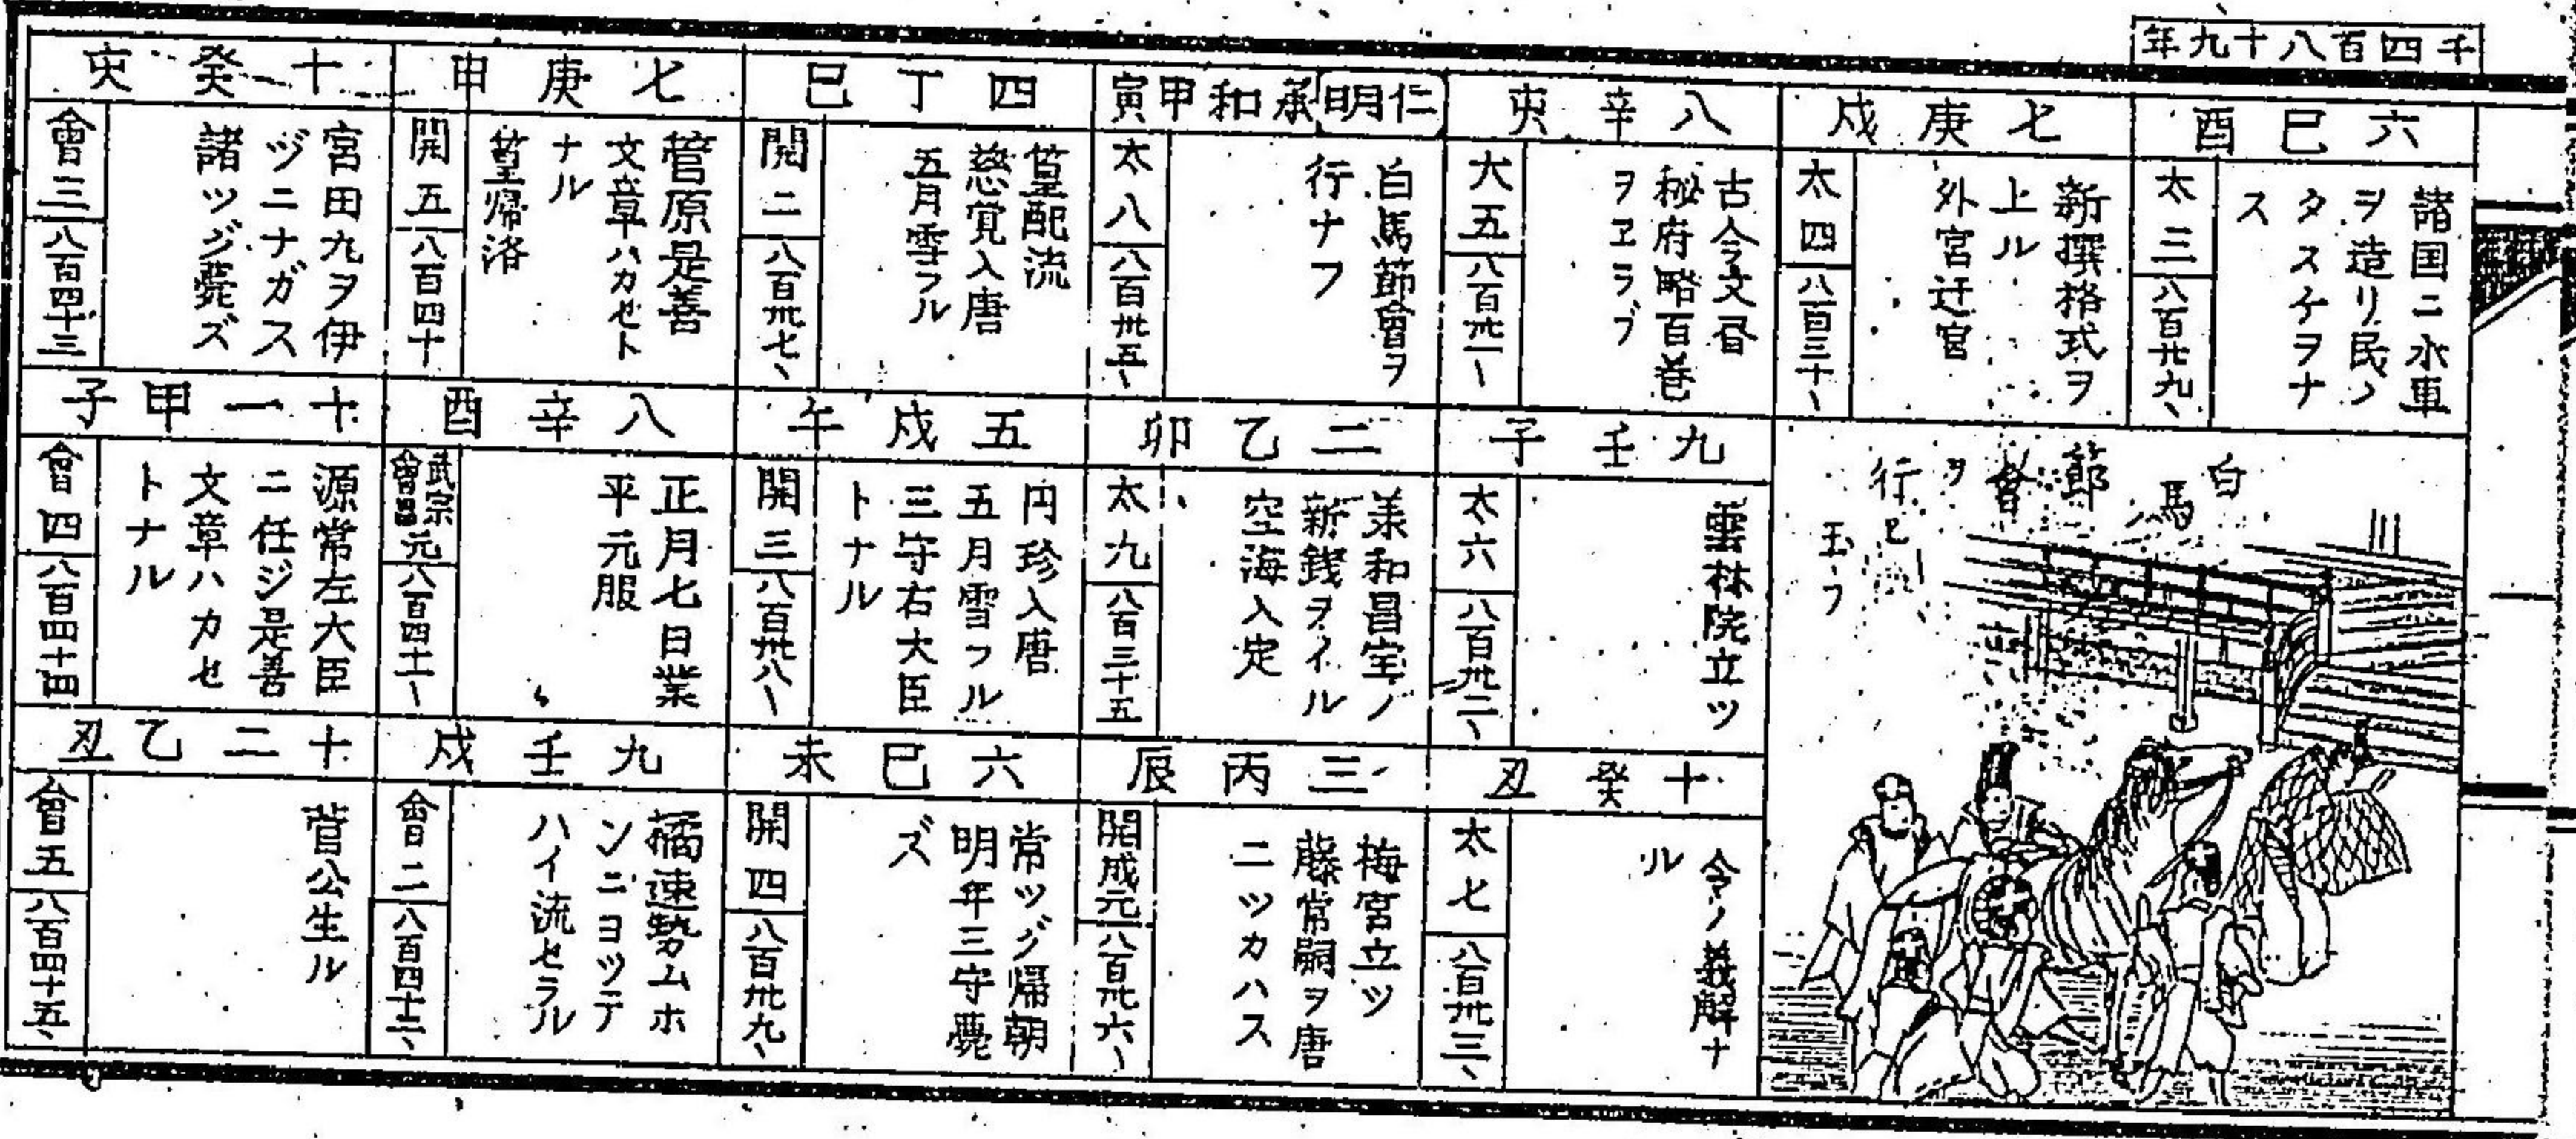 千四百八十九年
六己酉
諸国ニ水車
ヲ造リ民ノ
タスケヲナ
ス
太三
八百廿九、
七庚戌
新撰格式ヲ
上ル
外宮迁宮
太四
八百三十、
八辛亥
古今文昏
秘府略百巻
ヲヱラブ
大五
八百卅一、
九壬子
雲林院立ツ
太六
八百卅二、
十癸丑
令ノ義解ナ
ル
太七
八百卅三、
白馬
節會ヲ
行ヒ
玉フ
仁明
承和甲寅
白馬節會ヲ
行ナフ
太八
八百卅五、
二乙卯
美和昌宝ノ
新銭ヲイル
空海入定
太九
八百三十五
三丙辰
梅宮立ツ
藤常嗣ヲ唐
ニツカハス
開成元
八百卅六、
四丁巳
篁配流
慈覚入唐
五月雪フル
開二
八百卅七、
五戌午
円珍入唐
五月雪フル
三守右大臣
トナル
開三
八百卅八、
六巳未
常ツグ帰朝
明年三守薨
ズ
開四
八百卅九、
七庚申
菅原是善
文章ハカセト
ナル
篁帰洛
開五
八百四十
八辛酉
正月七日業
平元服
武宗
會昌元
八百四十一、
九壬戌
橘速勢ムホ
ンニヨツテ
ハイ流セラル
會二
八百四十二、
十癸亥
宮田九ヲ伊
ヅニナガス
諸ツグ薨ズ
會三
八百四十三
十一甲子
源常左大臣
ニ任ジ是善
文章ハカセ
トナル
會四
八百四十四
十二乙丑
菅公生ル
會五
八百四十五、